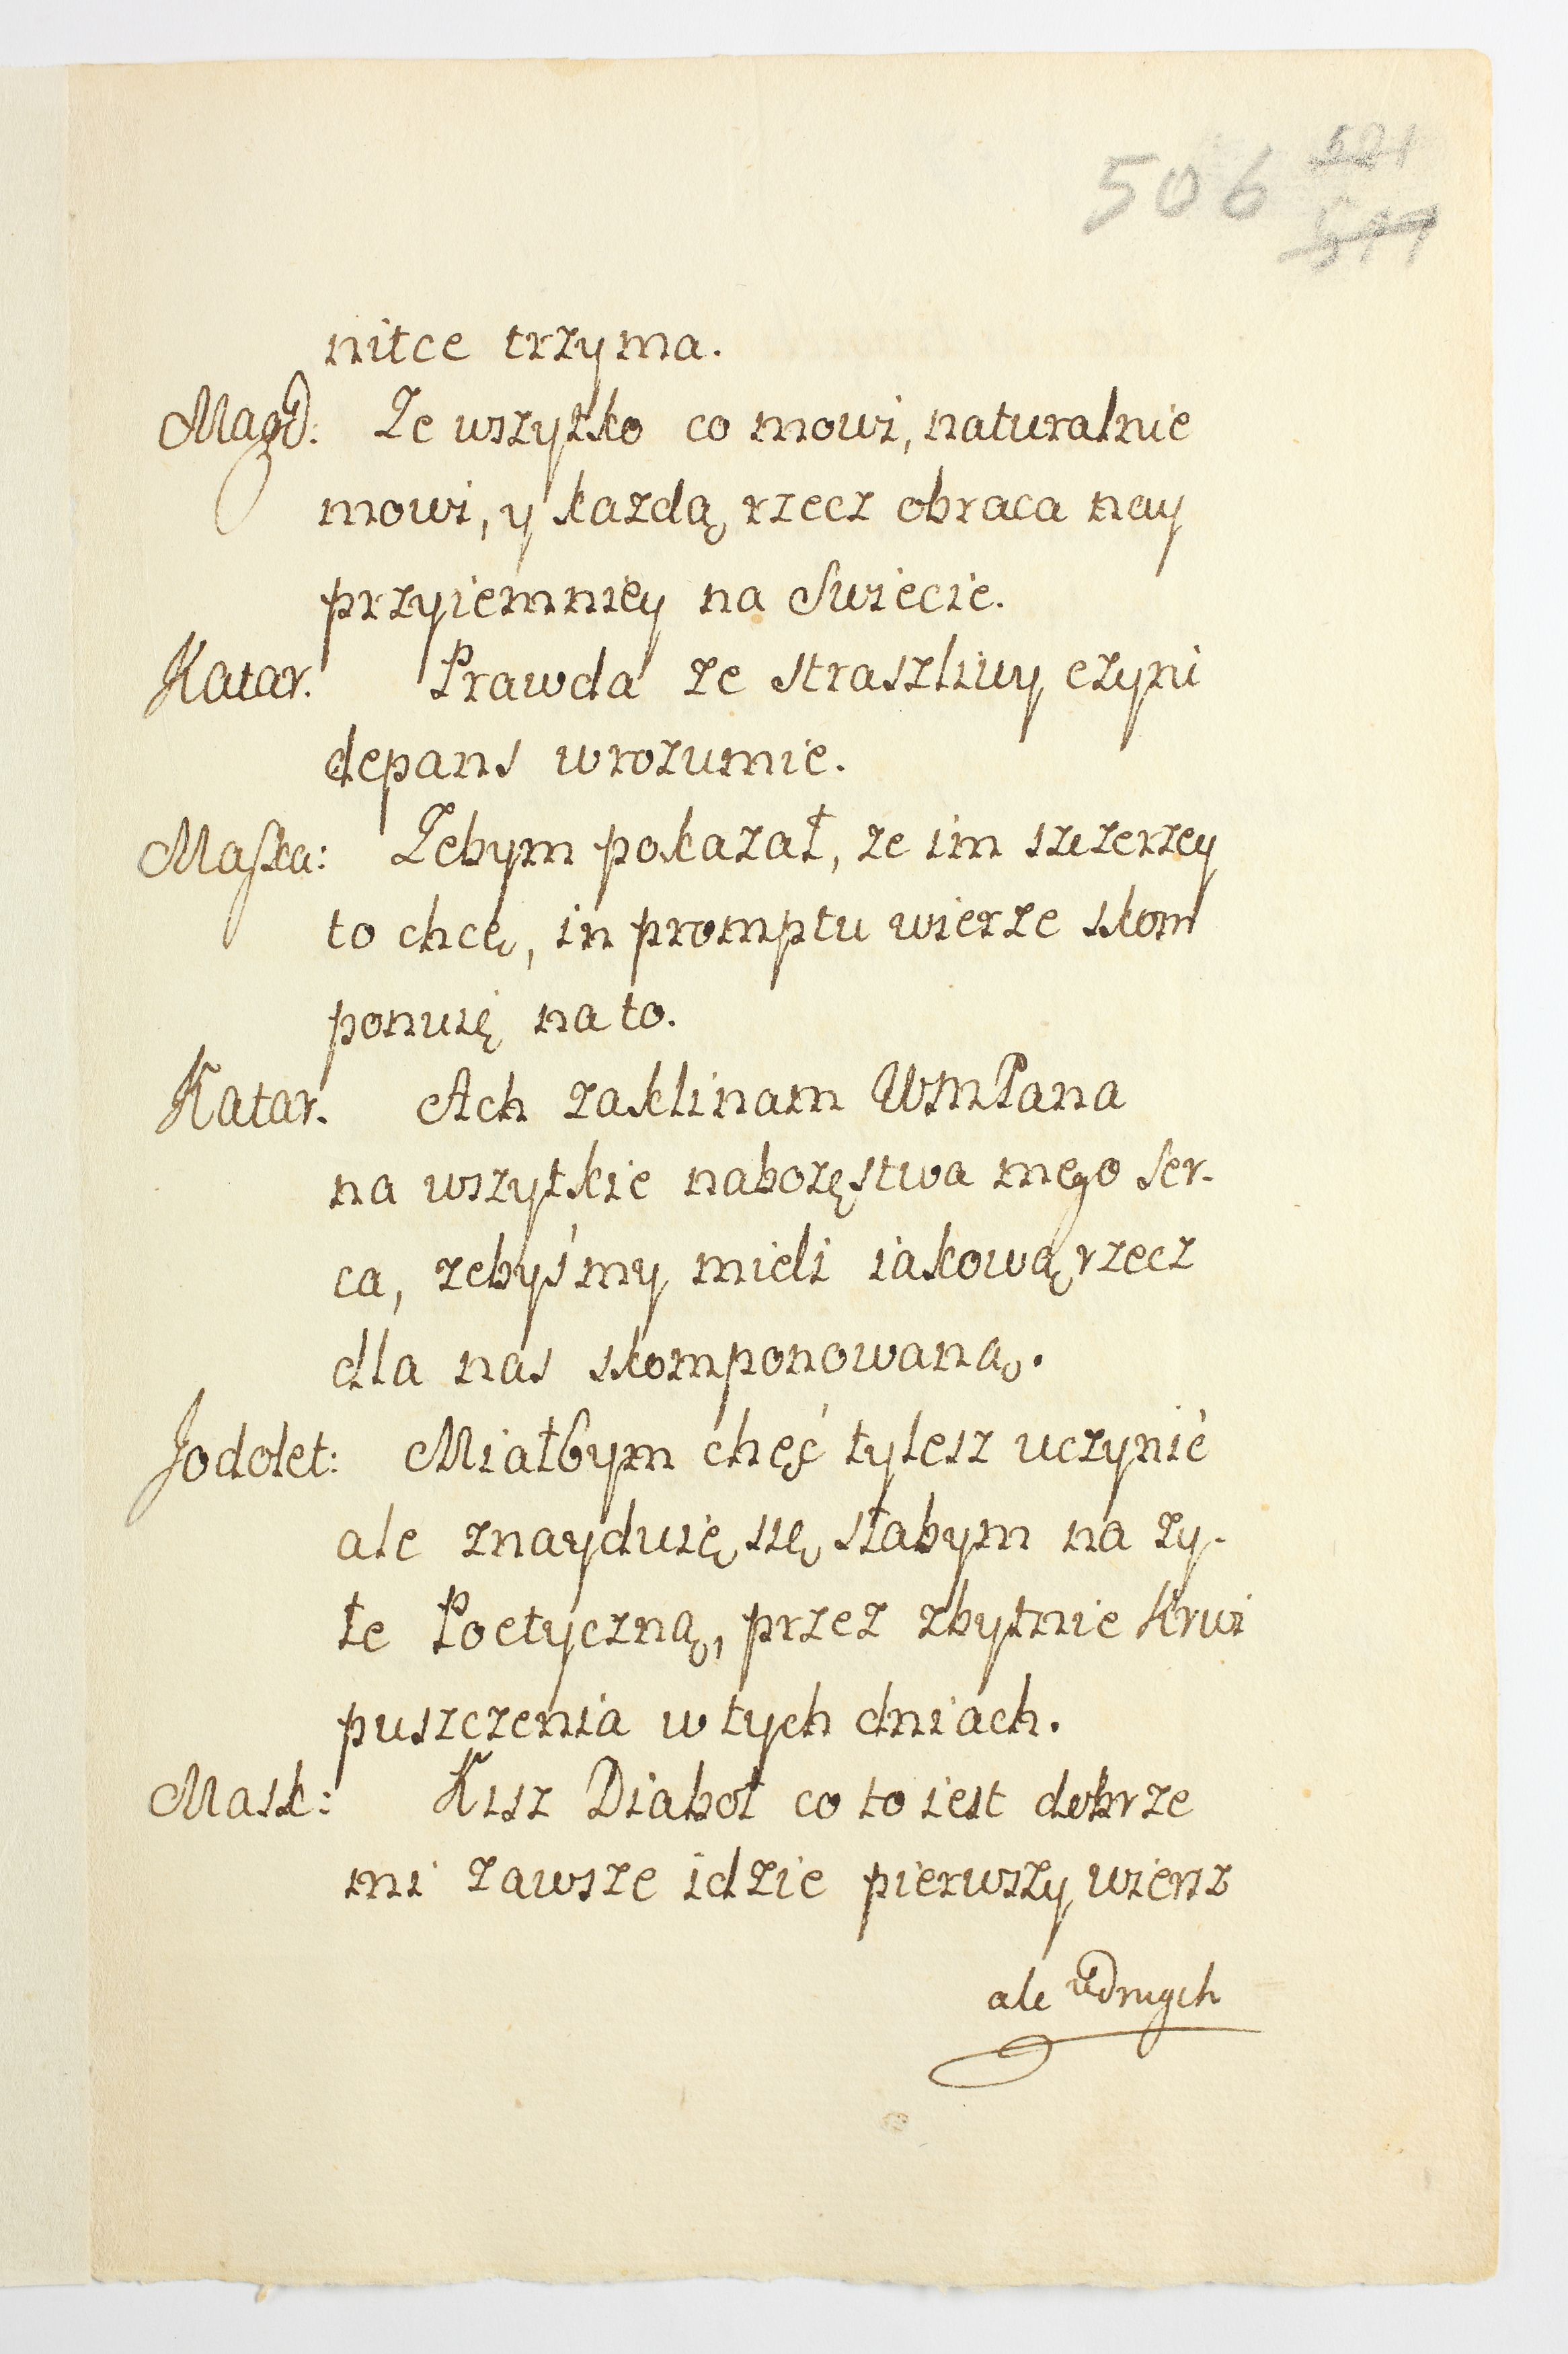 506
nitce trzyma.
Magd: Ze wszytko co mowi, naturalnie
mowi, y kazdą rzecz obraca nay
przyiemniey na Swiecie.
Katar. Prawda ze straszliwy czyni
depans wrozumie.
Maska: Zebym pokazał, ze im szczerzey
to chcę, in promptu wierze skom
ponuię na to.
Katar. Ach zaklinam WMPana
na wszytkie nabozęstwa mego Ser-
ca, zebyśmy mieli iakową rzecz
dla nas skomponowaną.
Jodolet: Miałbym chęć tylesz uczynić
ale znayduię się słabym na zy-
łe Poetyczną, przez zbytnie Krwi
puszczenia w tych dniach.
Mask: Kisz Diaboł co to iest dobrze
mi zawsze idzie pierwszy wiersz
ale